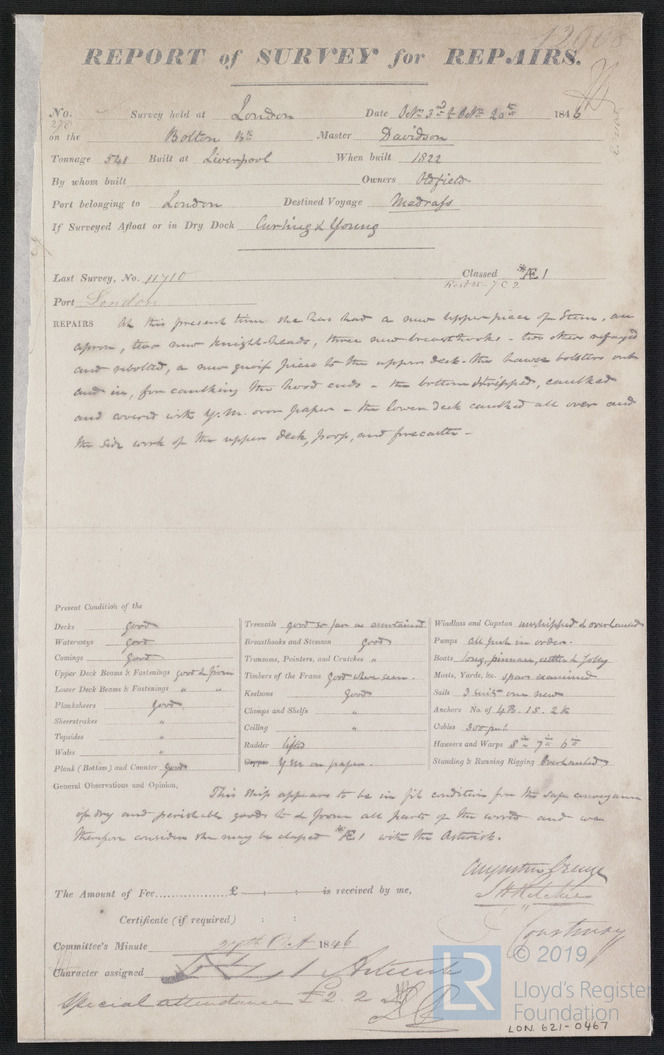 12968
REPORT of SURVEY for REPAIRS.
No. 278 Survey held at London Date Octr 3rd & Octr 20th 1846
on the Bolton Bk Master Davidson
Tonnage 541 Built at Liverpool When built 1822
By whom built Owners Oldfield
Port belonging to London Destined Voyage Madrass
If Surveyed Afloat or in Dry Dock Curling & Young
Last Survey, No. 11710 Classed *Æ 1
Port London
REPAIRS At this present time she has had a new upper piece of Stem, an
apron, two new knight-heads, three new breasthooks - two others refayed
and rebolted, a new griff piece to the upper deck - the hawse bolsters out
and in, for caulking the hood ends - the bottom stripped, caulked
and covered with Y.M. over paper - the lower deck caulked all over and
the side work of the upper deck, poop, and forecastle -
Present Condition of the
Decks good
Waterways good
Comings good
Upper Deck Beams & Fastenings good & firm
Lower Deck Beams & Fastenings " "
Planksheers good
Sheerstrakes "
Topsides "
Wales "
Plank (Bottom) and Counter good
Treenails good so far as ascertained
Breasthooks and Stemson good
Transoms, Pointers, and Crutches "
Timbers of the Frame good where seen.
Keelsons good
Clamps and Shelfs "
Ceiling "
Rudder lifted
Copper Y.M on paper.
Windlass and Capstan unshipped & overhauled
Pumps all put in order.
Boats long, pinnace, cutter & Jolly
Masts, Yards, &c. spars examined
Sails 3 suits one new
Anchors No. of 4B. 1S. 2K
Cables 300 fm
Hawsers and Warps 8in 7in 6in
Standing & Running Rigging Overhauled
General Observations and Opinion,
This Ship appears to be in fit condition for the safe conveyance
of dry and perishable goods to & from all parts of the world and we
therefore consider she may be classed *Æ 1 with the Asterisk.
The Amount of Fee............... £ : : is received by me,
Certificate (if required) : :
Committee's Minute 27th Oct 1846
Character assigned Æ 1 Asterisk
Special attendance £2. 2
© 2019
LR
Lloyd's Register
Foundation
LON. 621-0467